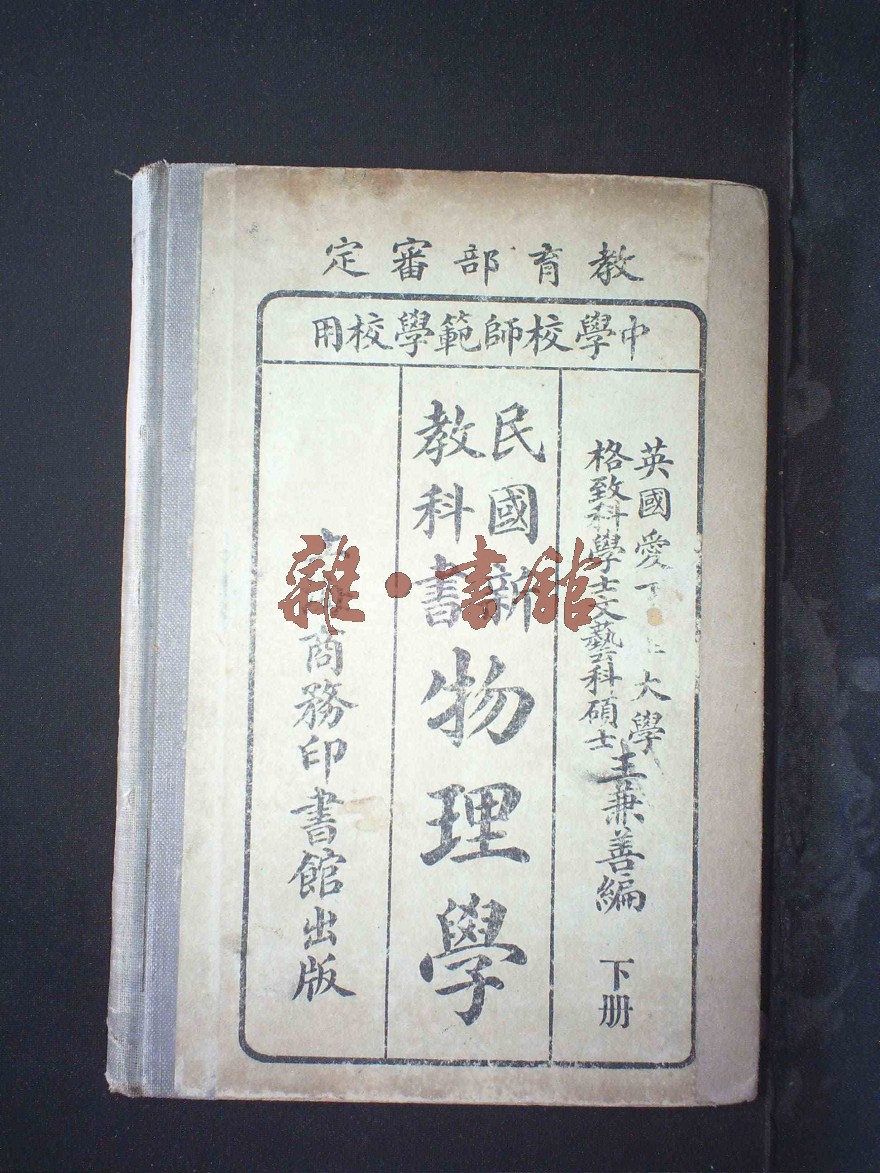 教育部審定
中學校師範學校用
英國愛丁 大學
格致科學士文藝科碩士
王兼善編
下册
民國新
教科書
物理學
上海商務印書館出版
雜·書館